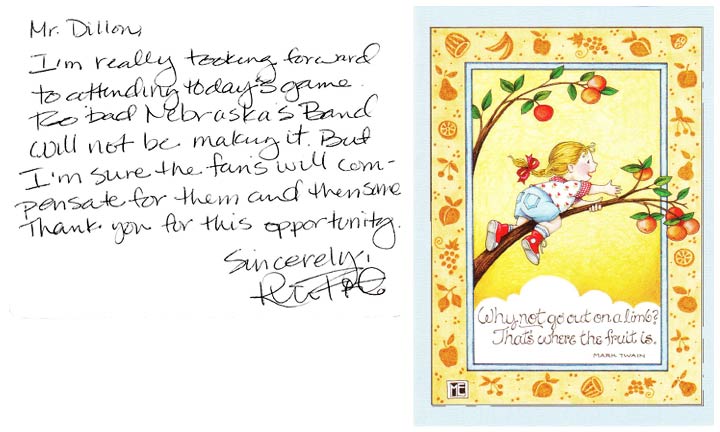 Mr. Dillon,
I'm really looking forward
to attending today's game.
Too bad Nebraska's Band
will not be making it. But
I'm sure the fans will com-
pensate for them and then some
Thank you for this opportunity.
Sincerely,
Why not go out on a limb?
That's where the fruit is.
MARK TWAIN
ME